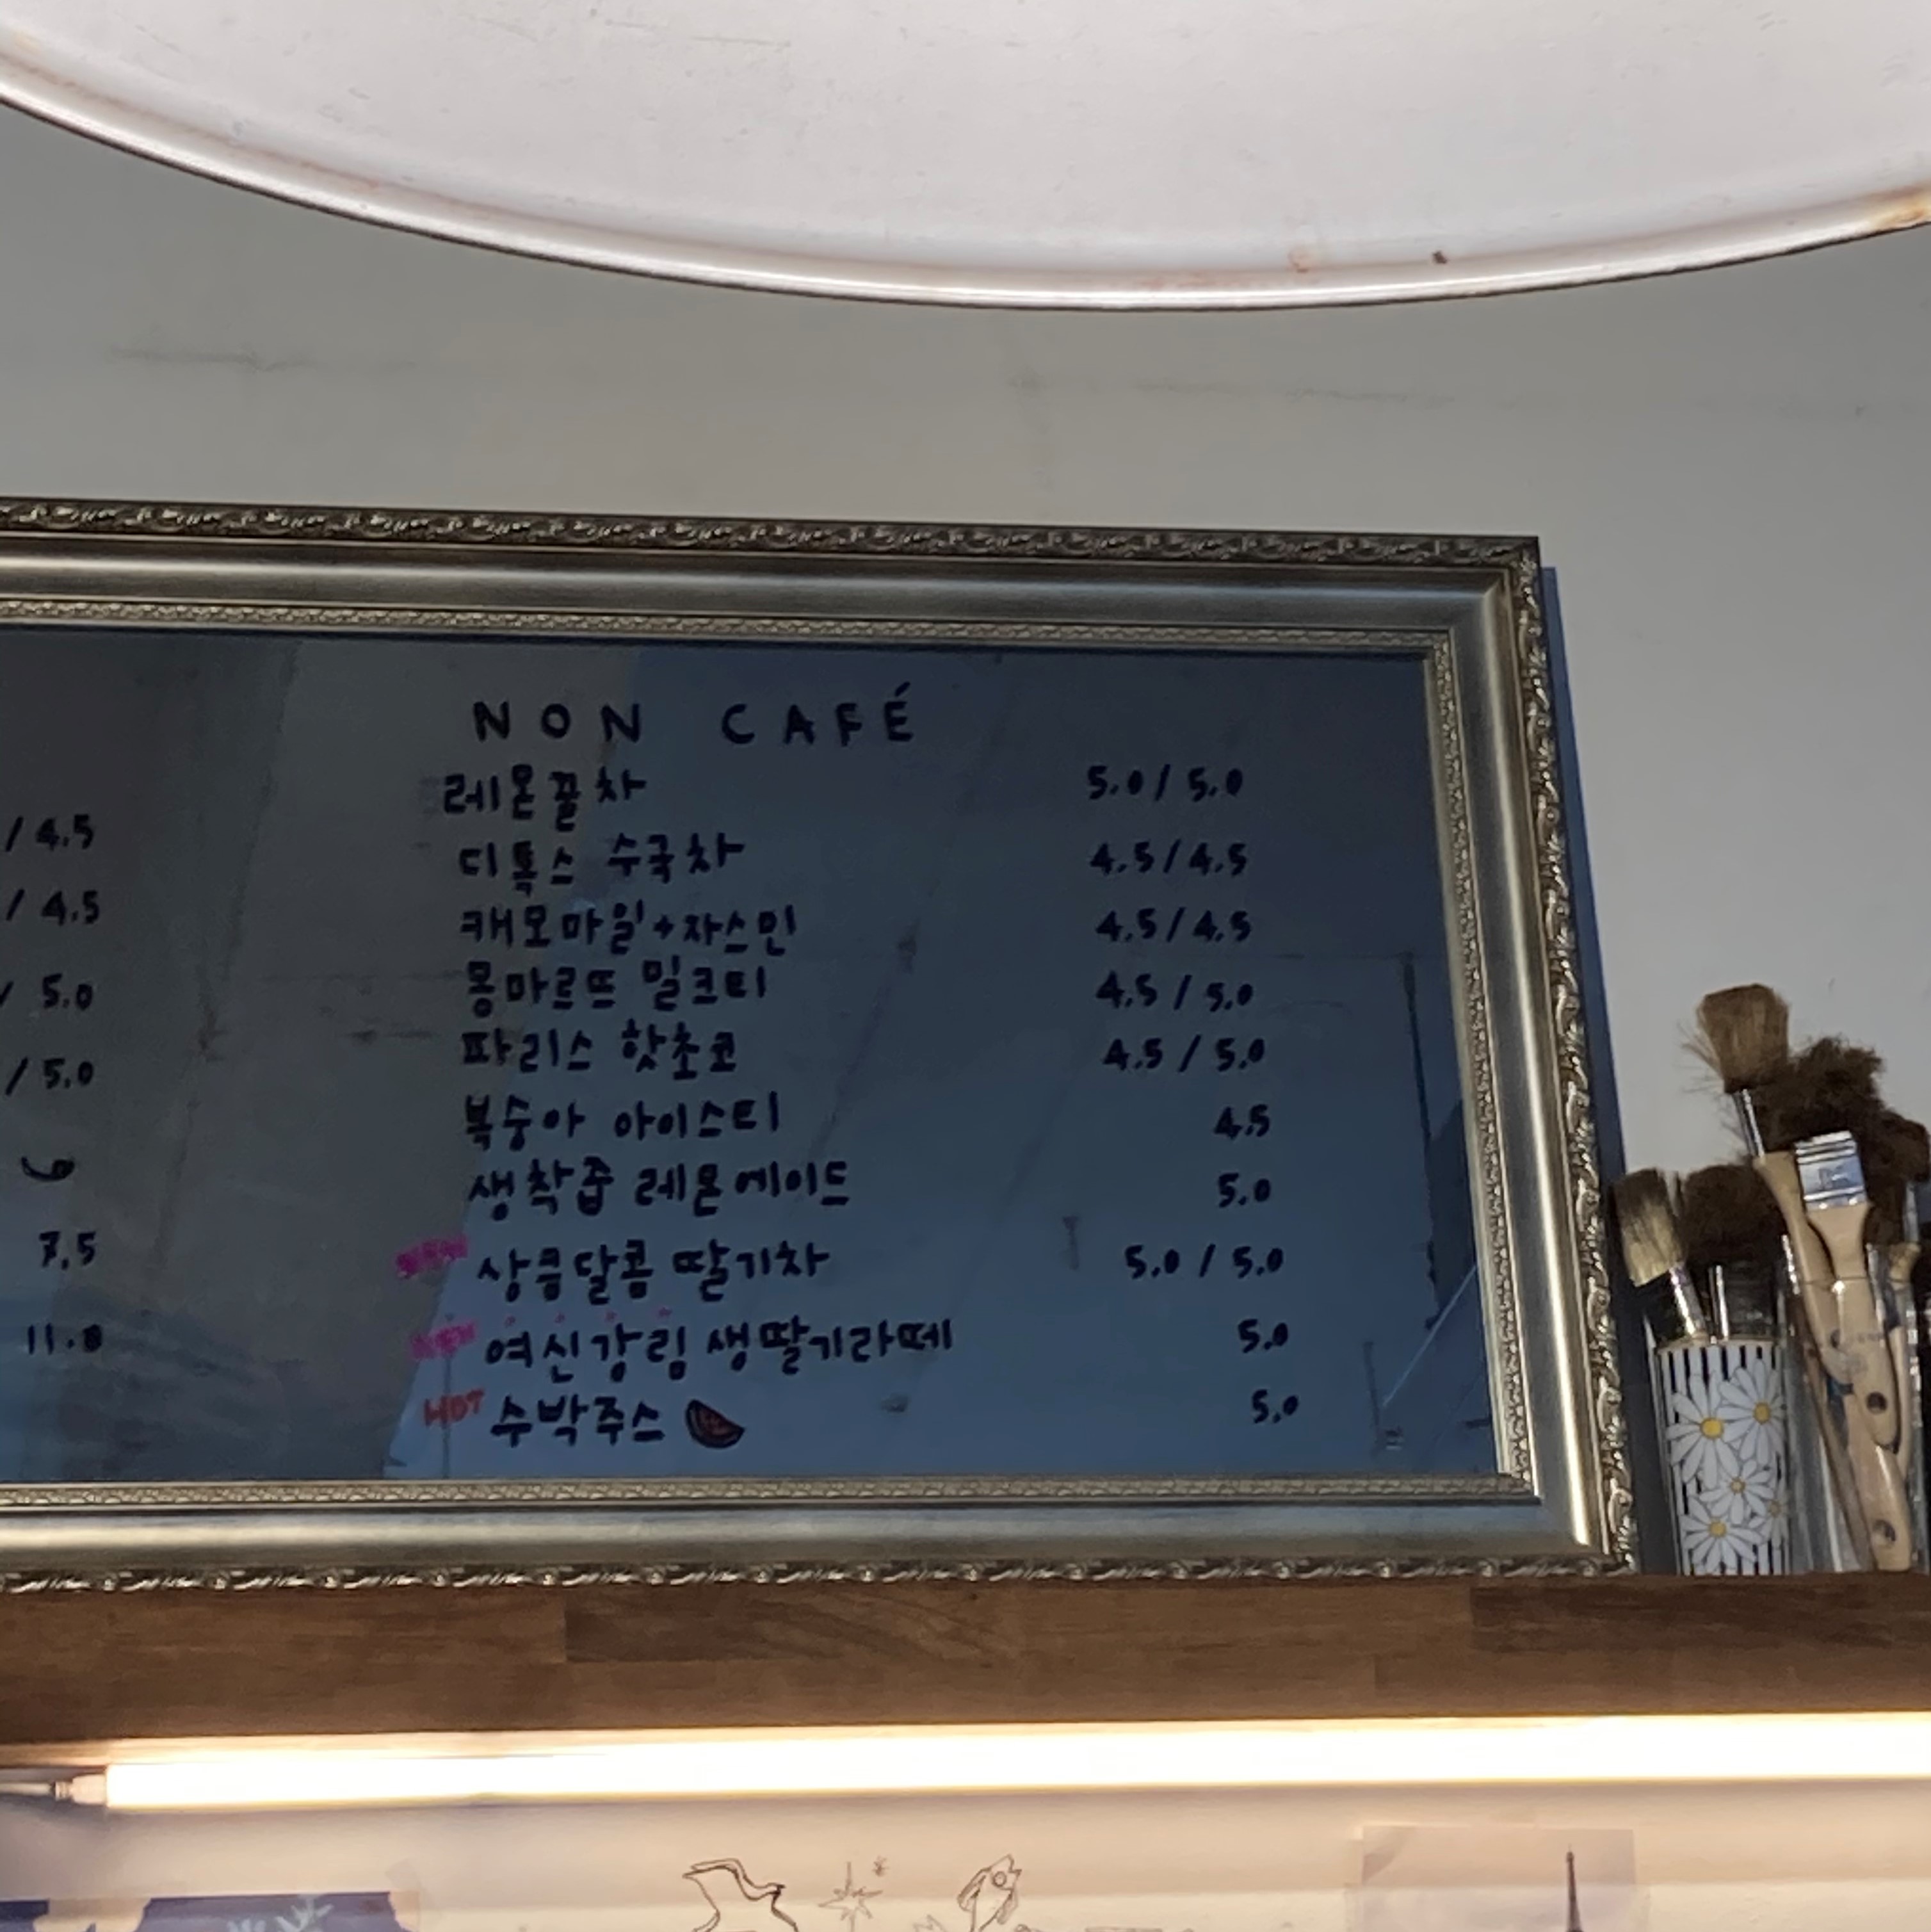 / 4.5
/ 4.5
/ 5.0
/ 5.0
6
7.5
11.0
NON CAFÉ
레몬꿀차 5.0 / 5.0
디톡스 수국차 4.5 / 4.5
캐모마일+자스민 4.5 / 4.5
몽마르뜨 밀크티 4.5 / 5.0
파리스 핫초코 4.5 / 5.0
복숭아 아이스티 4.5
생착즙 레몬에이드 5.0
상큼달콤 딸기차 5.0 / 5.0
여신강림 생딸기라떼 5.0
HOT 수박주스 5.0